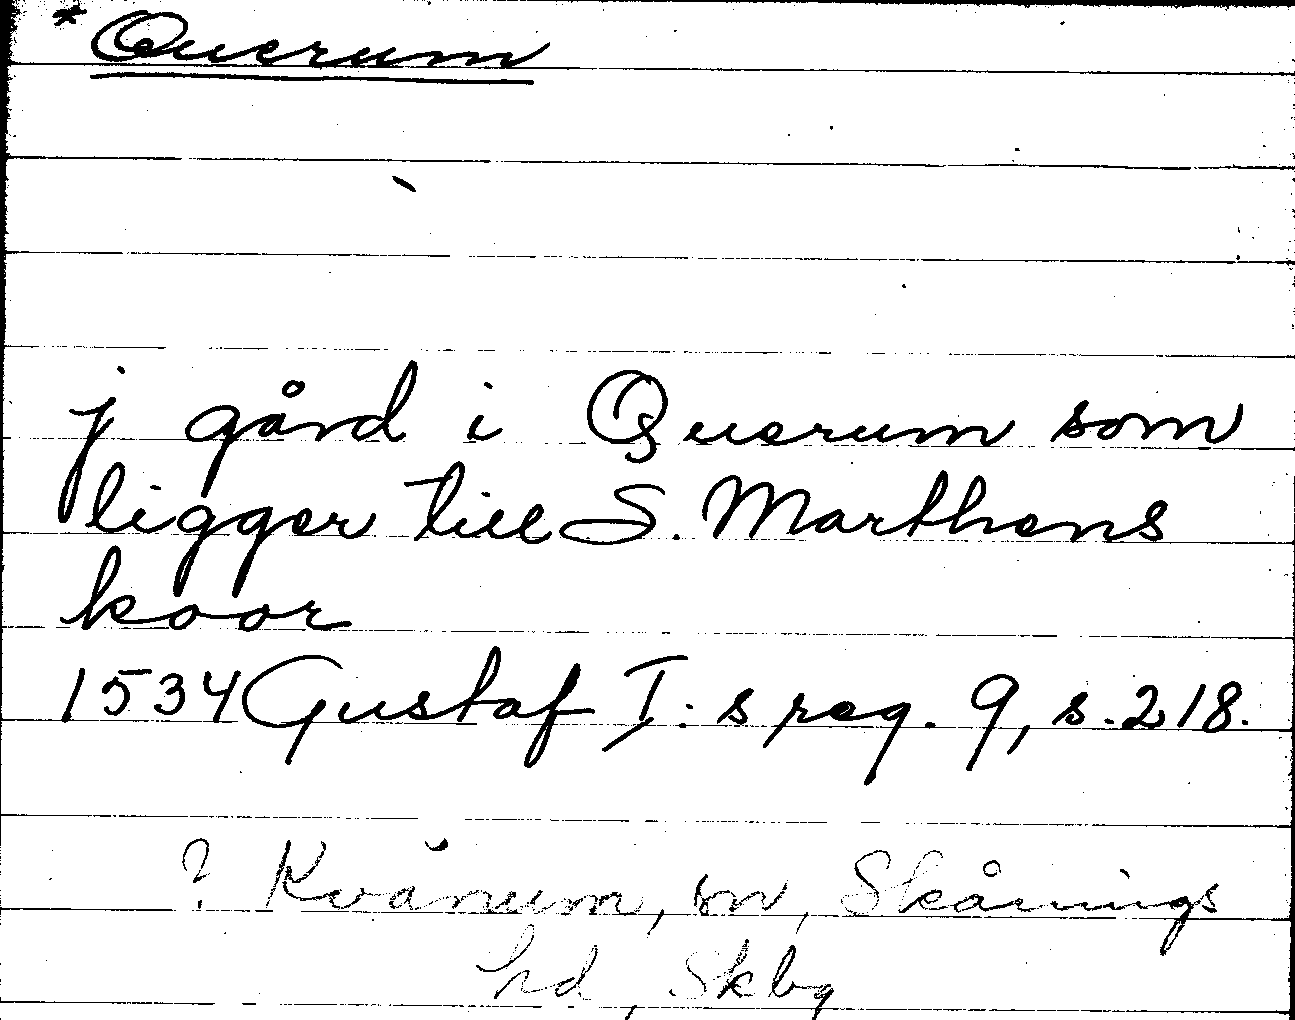 * Querum
j gård i Querum som
ligger till S. Marthens
koor
1534 Gustaf I:s reg. 9, s. 218.
? Kvänum, sn, Skånings
hd, Skbg